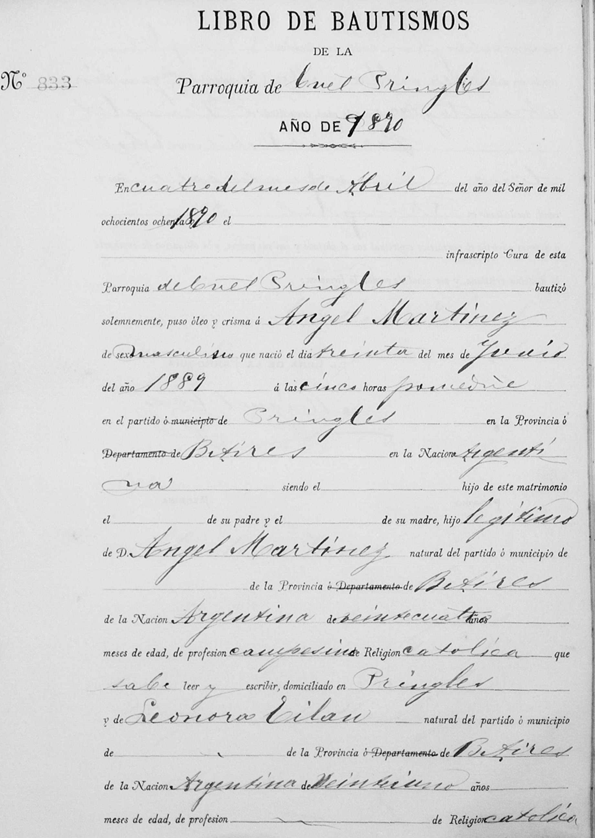 LIBRO DE BAUTISMOS
DE LA
Nº 833
Parroquia de Cnel Pringles
AÑO DE 1890
En cuatro del mes de Abril del año del Señor de mil
ochocientos ochenta 1890 el
infrascripto Cura de esta
Parroquia de Cnel Pringles bautizó
solemnemente, puso óleo y crisma á Angel Martinez
de sexo masculino que nació el dia treinta del mes de Junio
del año 1889 á las cinco horas
en el partido ò municipio de Pringles en la Provincia ò
Departamento de B Aires en la Nacion Argenti
na siendo el hijo de este matrimonio
el de su padre y el de su madre, hijo legitimo
de D. Angel Martinez natural del partido ò municipio de
de la Provincia ò Departamento de B Aires
de la Nacion Argentina de años
meses de edad, de profesion campesino de Religion catolica que
sabe leer y escribir, domiciliado en Pringles
y de Leonora natural del partido ò municipio
de de la Provincia ò Departamento de B Aires
de la Nacion Argentina de veintiuno años
meses de edad, de profesion de Religion catolica